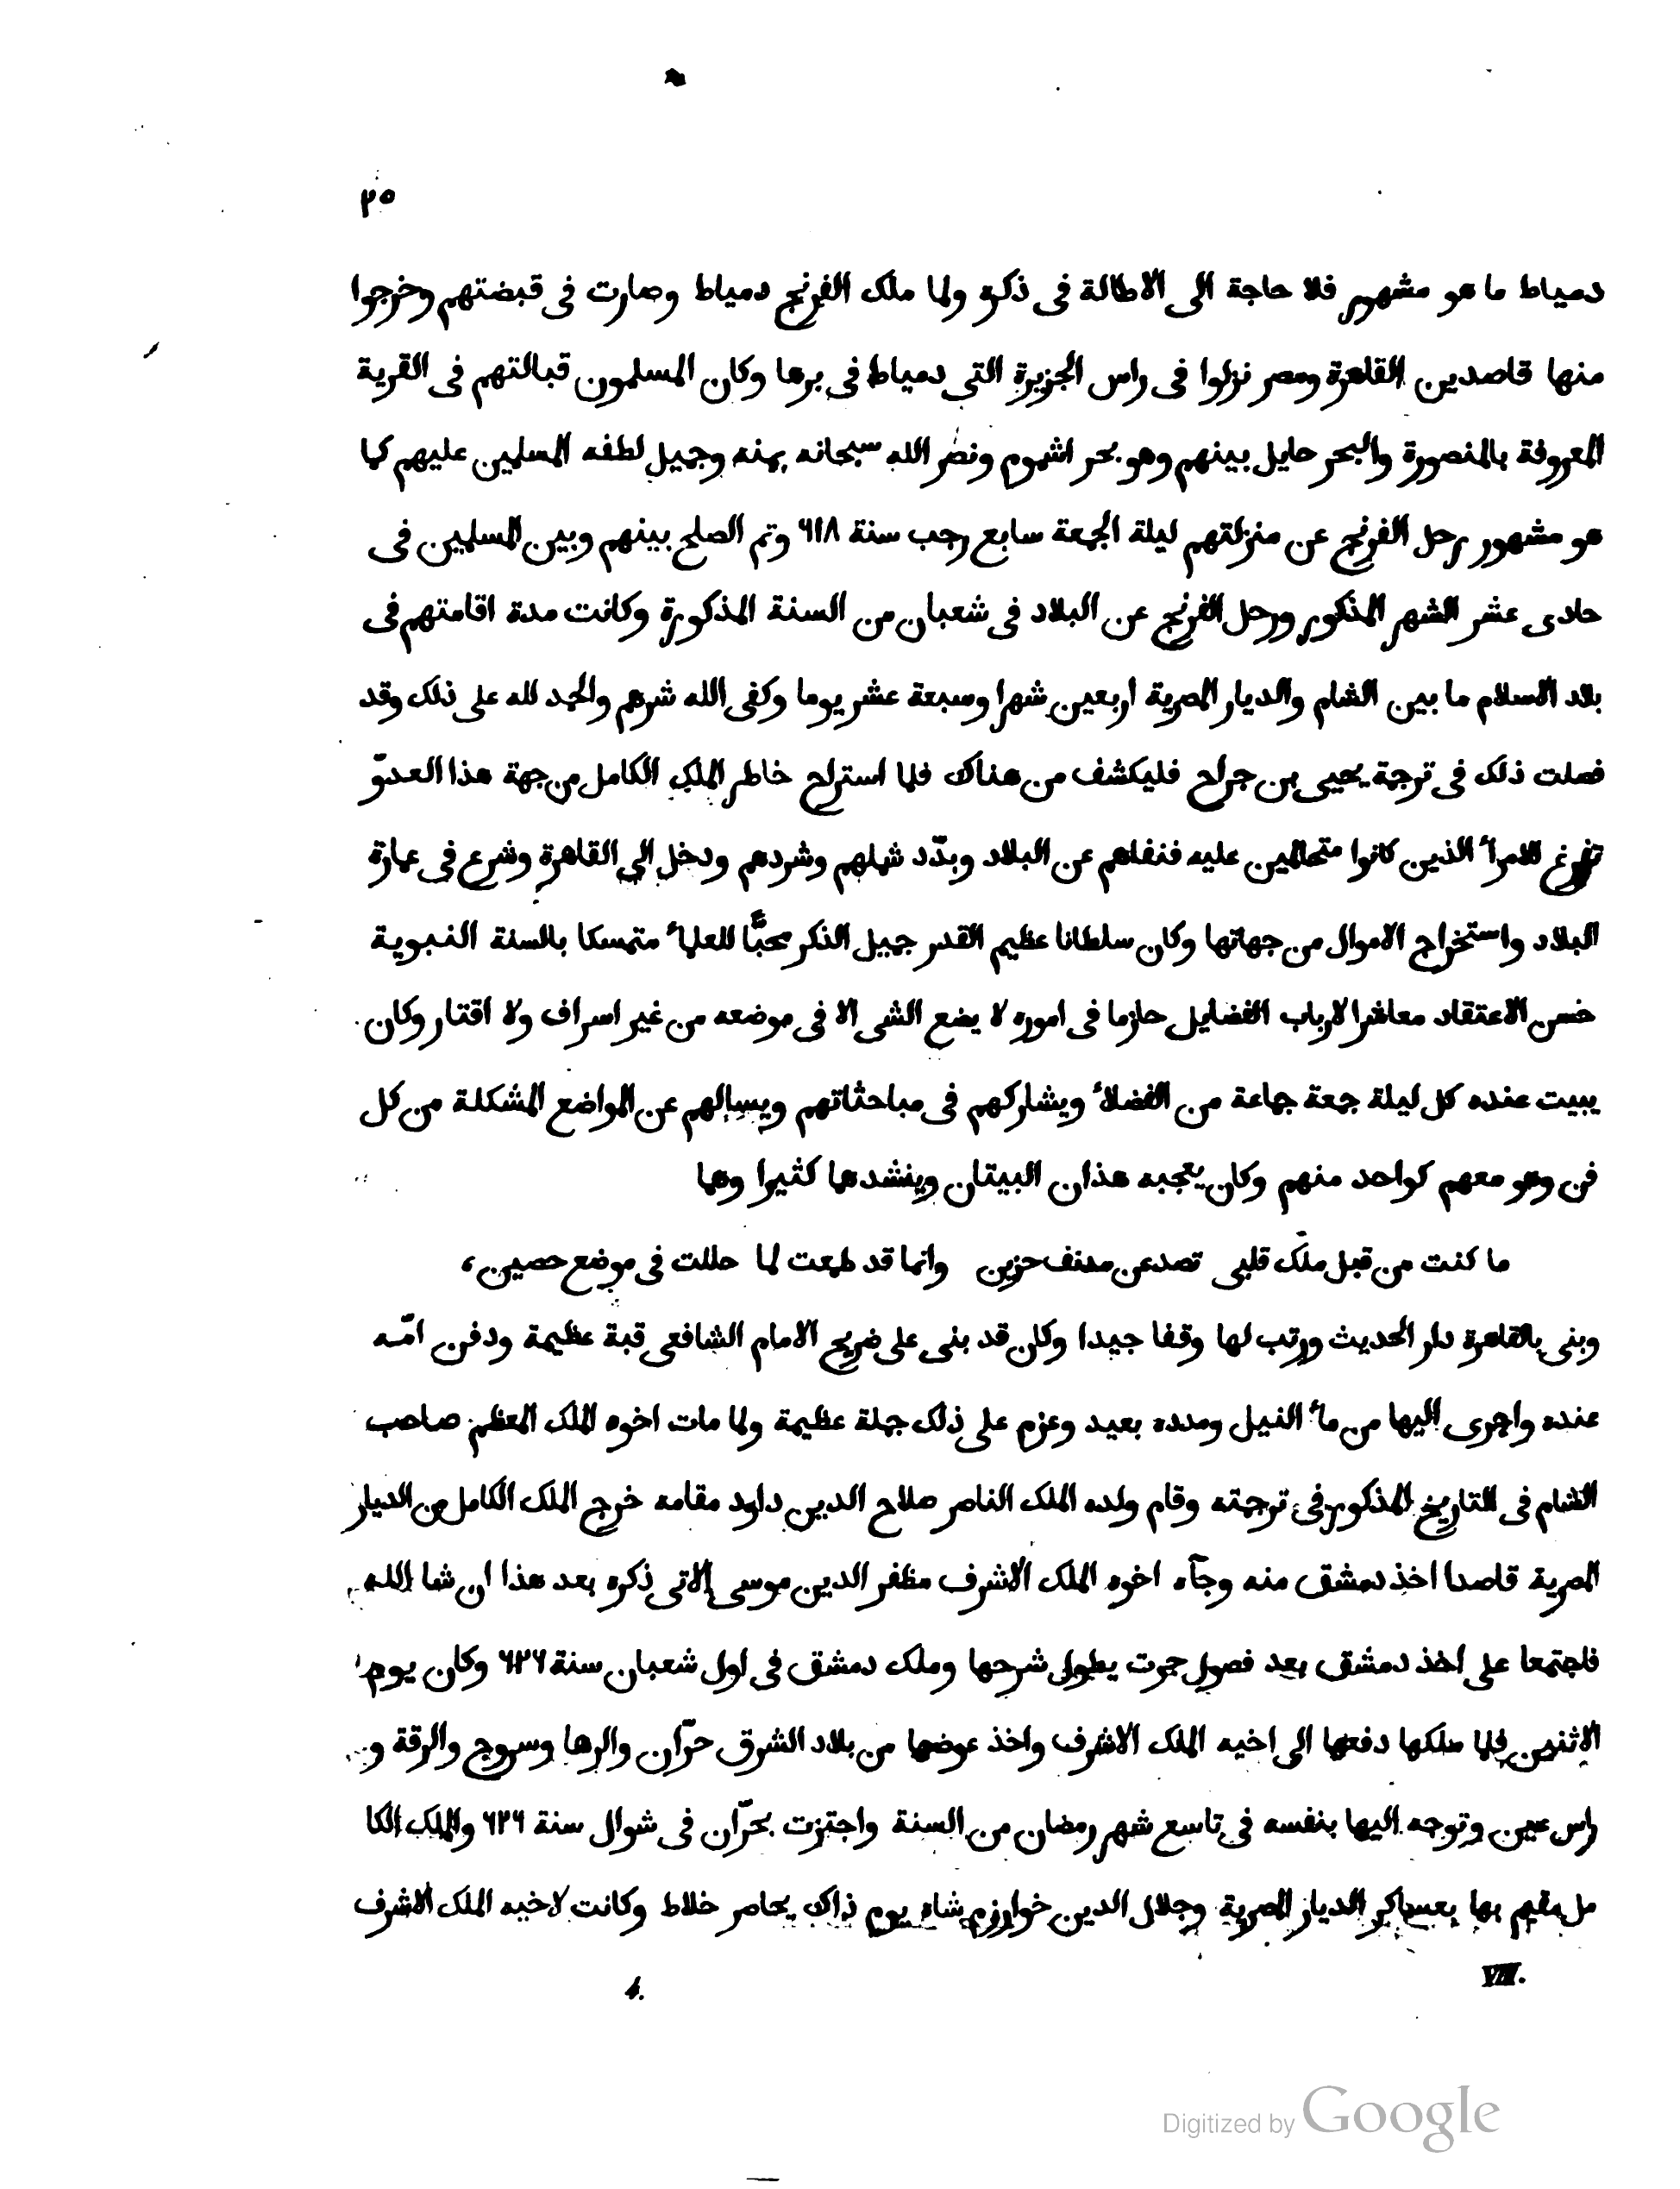 ٢٥
دمياط ما هو مشهور فلا حاجة الى الاطالة فى ذكره ولما ملك الفرنج دمياط وصارت فى قبضتهم وخرجوا
منها قاصدين القاهرة ومصر نزلوا فى راس الجزيرة التى دمياط فى برها وكان المسلمون قبالتهم فى القرية
المعروفة بالمنصورة والبحر حايل بينهم وهو بحر اشموم ونصر الله سبحانه بمنه وجميل لطفه المسلمين عليهم كما
هو مشهور رحل الفرنج عن منزلتهم ليلة الجمعة سابع رجب سنة ٦١٨ وتم الصلح بينهم وبين المسلمين فى
حادى عشر الشهر المذكور ورحل الفرنج عن البلاد فى شعبان من السنة المذكورة وكانت مدة اقامتهم فى
بلاد الاسلام ما بين الشام والديار المصرية اربعين شهرا وسبعة عشر يوما وكفى الله شرهم والحمد لله على ذلك وقد
فصلت ذلك فى ترجمة يحيى بن جراح فليكشف من هناك فلما استراح خاطر الملك الكامل من جهة هذا العدوّ
تفرغ للامرآ الذين كانوا متحاملين عليه فنفاهم عن البلاد وبدّد شملهم وشردهم ودخل الى القاهرة وشرع فى عمارة
البلاد واستخراج الاموال من جهاتها وكان سلطانا عظيم القدر جميل الذكر محبًّا للعلمآ متمسكا بالسنة النبوية
حسن الاعتقاد معاشرا لارباب الفضايل حازما فى اموره لا يضع الشى الا فى موضعه من غير اسراف ولا اقتار وكان
يبيت عنده كل ليلة جمعة جماعة من الفضلآ ويشاركهم فى مباحثاتهم ويسالهم عن المواضع المشكلة من كل
فن وهو معهم كواحد منهم وكان يعجبه هذان البيتان وينشدهما كثيرا وهما
ما كنت من قبل ملك قلبى تصد عن مدنف حزين وانما قد طمعت لما حللت فى موضع حصين،
وبنى بالقاهرة دار الحديث ورتب لها وقفا جيدا وكان قد بنى على ضريح الامام الشافعى قبة عظيمة ودفن امّه
عنده واجرى اليها من مآ النيل ومدده بعيد وغرم على ذلك جملة عظيمة ولما مات اخوه الملك المعظم صاحب
الشام فى التاريخ المذكور فى ترجمته وقام ولده الملك الناصر صلاح الدين داود مقامه خرج الملك الكامل من الديار
المصرية قاصدا اخذ دمشق منه وجآه اخوه الملك الاشرف مظفر الدين موسى الاتى ذكره بعد هذا ان شا الله
فاجتمعا على اخذ دمشق بعد فصول جرت يطول شرحها وملك دمشق فى اول شعبان سنة ٦٢٦ وكان يوم
الاثنين فلما ملكها دفعها الى اخيه الملك الاشرف واخذ عوضها من بلاد الشرق حرّان والرها وسروج والرقة و
راس عين وتوجه اليها بنفسه فى تاسع شهر رمضان من السنة واجتزت بحرّان فى شوال سنة ٦٢٦ والملك الكا
مل مقيم بها بعساكر الديار المصرية وجلال الدين خوارزم شاه يوم ذاك يحاصر خلاط وكانت لاخيه الملك الاشرف
VIII. 4.
Digitized by Google